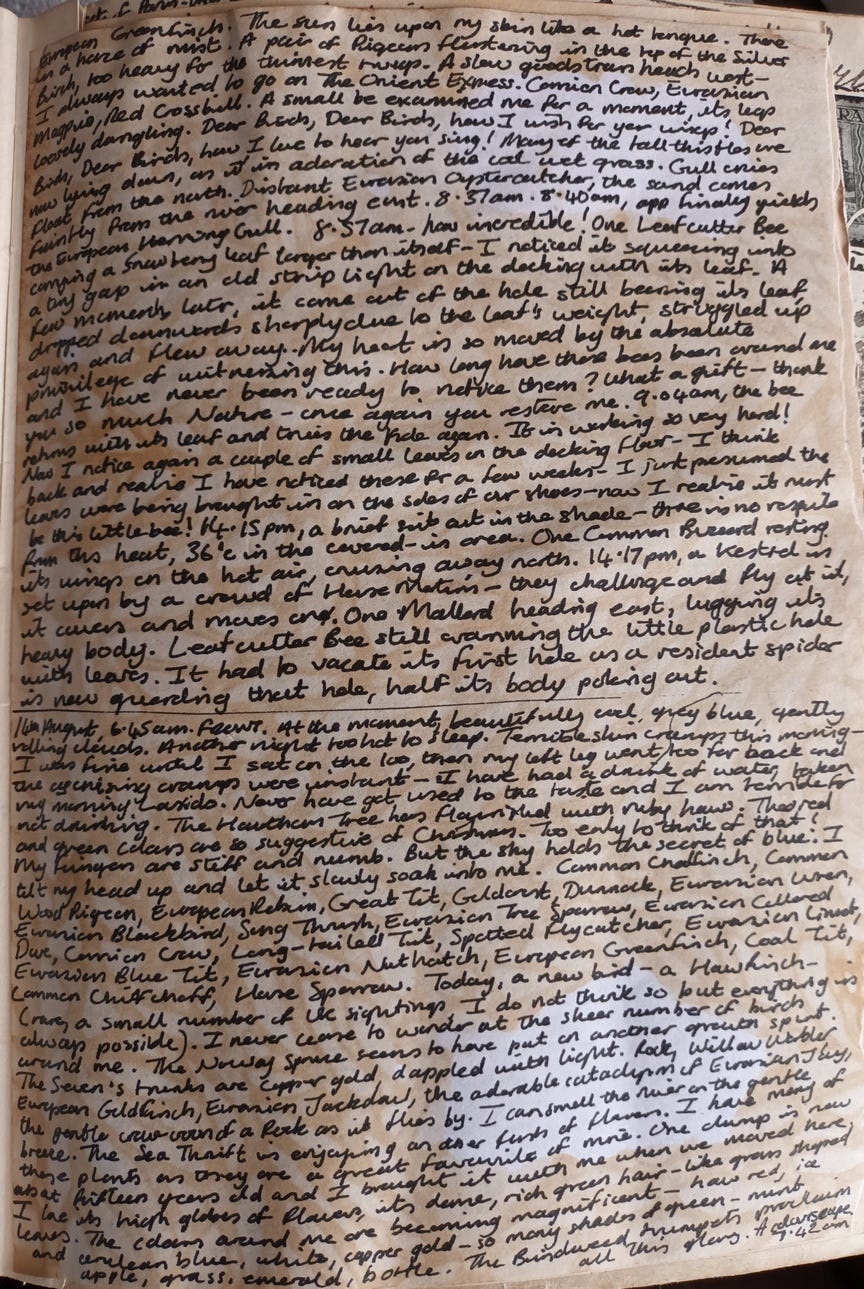 European Greenfinch. The sun lies upon my skin like a hot tongue. There
is a haze of mist. A pair of Pigeons flustering in the top of the Silver
Birch, too heavy for the thinnest twigs. A slow goods train heads west –
I always wanted to go on The Orient Express. Carrion Crow, Eurasian
Magpie, Red Crossbill. A small bee examined me for a moment, its legs
loosely dangling. Dear Birds, Dear Birds, how I wish for your wings! Dear
Birds, Dear Birds, how I love to hear you sing! Many of the tall thistles are
now lying down, as if in adoration of the cool wet grass. Gull cries
float from the north. Distant Eurasian Oystercatcher, the sound comes
faintly from the river heading east. 8.37am. 8.40am, app finally yields
the European Herring Gull. 8.57am – how incredible! One Leafcutter Bee
carrying a Snowberry leaf larger than itself – I noticed it squeezing into
a tiny gap in an old strip light on the decking with its leaf. A
few moments later, it came out of the hole still bearing its leaf
dropped downwards sharply due to the leaf's weight, struggled up
again and flew away. My heart is so moved by the absolute
privilege of witnessing this. How long have these bees been around me
and I have never been ready to notice them? What a gift – thank
you so much Nature – once again you restore me. 9.04am, the bee
returns with its leaf and tries the hole again. It is working so very hard!
Now I notice again a couple of small leaves on the decking floor – I think
back and realise I have noticed these for a few weeks – I just presumed the
leaves were being brought in on the soles of our shoes – now I realise it must
be this little bee! 14.15pm, a brief sit out in the shade – there is no respite
from this heat, 36°c in the covered-in area. One Common Buzzard resting
its wings on the hot air, cruising away north. 14.17pm, a Kestrel is
set upon by a crowd of House Martins – they challenge and fly at it,
it cowers and moves on. One Mallard heading east, lugging its
heavy body. Leafcutter Bee still cramming the little plastic hole
with leaves. It had to vacate its first hole as a resident spider
is now guarding that hole, half its body poking out.
14th August, 6.45am. FRONT. At the moment, beautifully cool, grey blue, gently
rolling clouds. Another night too hot to sleep. Terrible shin cramps this morning –
I was fine until I sat on the loo, then my left leg went too far back and
the agonising cramps were instant – I have had a drink of water, taken
my morning Laxido. Never have got used to the taste and I am terrible for
not drinking. The Hawthorn Tree has flourished with ruby haws. The red
and green colours are so suggestive of Christmas. Too early to think of that!
My fingers are stiff and numb. But the sky holds the secret of blue. I
tilt my head up and let it slowly soak into me. Common Chaffinch, Common
Wood Pigeon, European Robin, Great Tit, Goldcrest, Dunnock, Eurasian Wren,
Eurasian Blackbird, Song Thrush, Eurasian Tree Sparrow, Eurasian Collared
Dove, Carrion Crow, Long-tailed Tit, Spotted Flycatcher, Eurasian Linnet,
Eurasian Blue Tit, Eurasian Nuthatch, European Greenfinch, Coal Tit,
Common Chiffchaff, House Sparrow. Today, a new bird – a Hawfinch –
(rare, a small number of UK sightings, I do not think so but everything is
always possible). I never cease to wonder at the sheer number of birds
around me. The Norway Spruce seems to have put on another growth spurt.
The Seven's trunks are copper gold, dappled with light. Rook, Willow Warbler
European Goldfinch, Eurasian Jackdaw, the adorable cataclysm of Eurasian Jay,
the gentle craw-sound of a Rook as it flies by. I can smell the river on the gentle
breeze. The Sea Thrift is enjoying another flush of flowers. I have many of
these plants as they are a great favourite of mine. One clump is now
about fifteen years old and I brought it with me when we moved here.
I love its high globes of flowers, its dense, rich green hair-like grass shaped
leaves. The colours around me are becoming magnificent – haw red, ice
and cerulean blue, white, copper gold – so many shades of green – mint
apple, grass, emerald, bottle. The Bindweed trumpets proclaim
all this glory. A colourscape,
9.42am